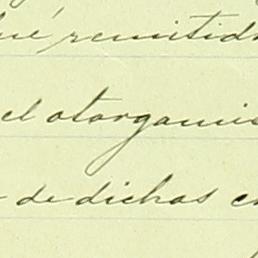 remitid
el otorgamie
de dichos